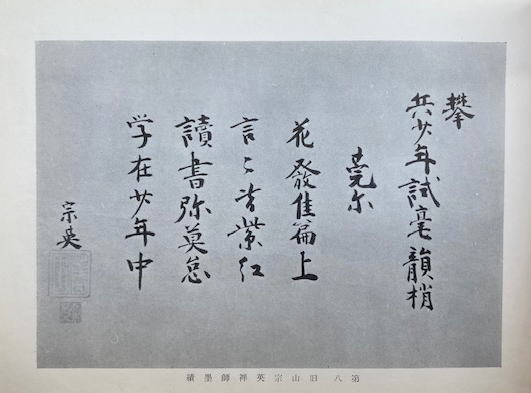 攀
兵少年試毫韻梢
莞尔
花發佳篇上
言〻皆紫紅
讀書弥莫怠
学在少年中
宗英
第八旧山宗英禅師墨績